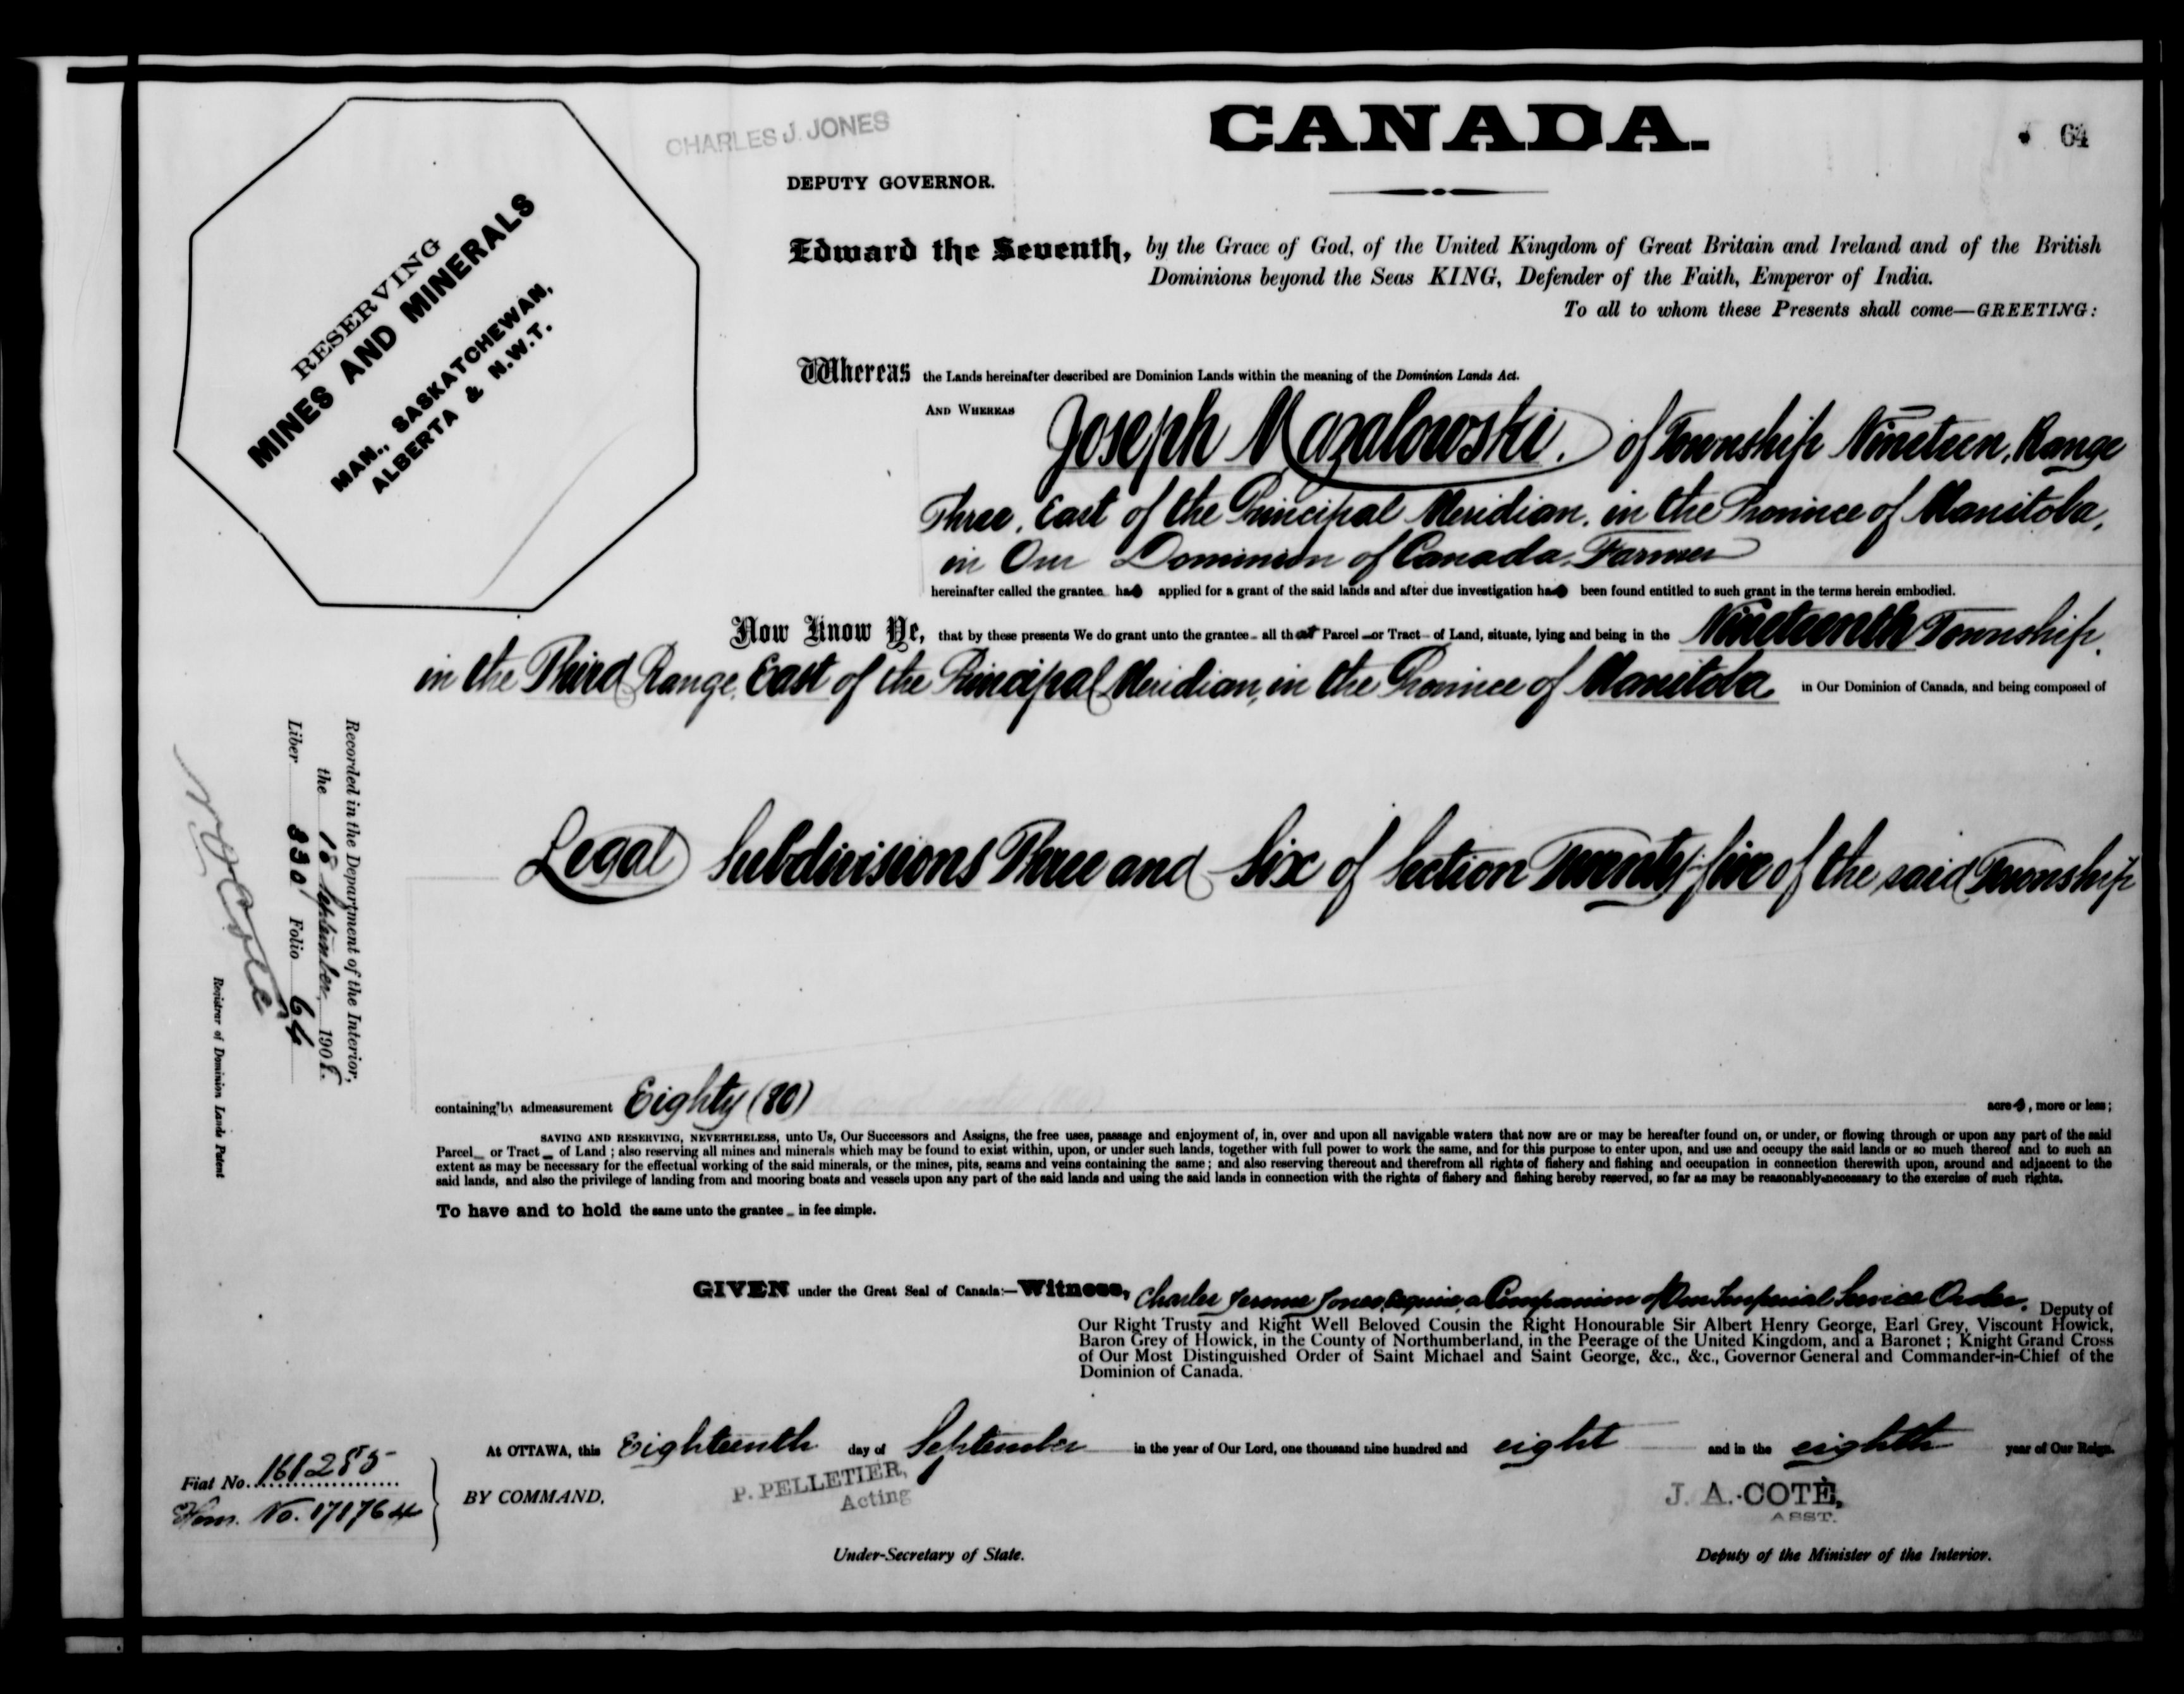 CANADA.
64
CHARLES J. JONES
DEPUTY GOVERNOR.
RESERVING
MINES AND MINERALS
MAN., SASKATCHEWAN,
ALBERTA & N.W.T.
Edward the Seventh, by the Grace of God, of the United Kingdom of Great Britain and Ireland and of the British
Dominions beyond the Seas KING, Defender of the Faith, Emperor of India.
To all to whom these Presents shall come—GREETING:
Whereas the Lands hereinafter described are Dominion Lands within the meaning of the Dominion Lands Act.
AND WHEREAS Joseph Mazalowski. of Township Nineteen, Range
Three, East of the Principal Meridian, in the Province of Manitoba,
in Our Dominion of Canada, Farmer
hereinafter called the grantee has applied for a grant of the said lands and after due investigation has been found entitled to such grant in the terms herein embodied.
Now Know Ye, that by these presents We do grant unto the grantee all that Parcel or Tract of Land, situate, lying and being in the Nineteenth Township,
in the Third Range, East of the Principal Meridian, in the Province of Manitoba, in Our Dominion of Canada, and being composed of
Legal Subdivisions Three and Six of Section Twenty-five of the said Township
Recorded in the Department of the Interior,
the 18 September, 1908.
Liber 330 Folio 64
Registrar of Dominion Lands Patent
containing by admeasurement Eighty (80) acres, more or less;
SAVING AND RESERVING, NEVERTHELESS, unto Us, Our Successors and Assigns, the free uses, passage and enjoyment of, in, over and upon all navigable waters that now are or may be hereafter found on, or under, or flowing through or upon any part of the said
Parcel or Tract of Land; also reserving all mines and minerals which may be found to exist within, upon, or under such lands, together with full power to work the same, and for this purpose to enter upon, and use and occupy the said lands or so much thereof and to such an
extent as may be necessary for the effectual working of the said minerals, or the mines, pits, seams and veins containing the same; and also reserving thereout and therefrom all rights of fishery and fishing and occupation in connection therewith upon, around and adjacent to the
said lands, and also the privilege of landing from and mooring boats and vessels upon any part of the said lands and using the said lands in connection with the rights of fishery and fishing hereby reserved, so far as may be reasonably necessary to the exercise of such rights.
To have and to hold the same unto the grantee in fee simple.
GIVEN under the Great Seal of Canada:—Witness, Charles Jerome Jones, Esquire, a Companion of Our Imperial Service Order, Deputy of
Our Right Trusty and Right Well Beloved Cousin the Right Honourable Sir Albert Henry George, Earl Grey, Viscount Howick,
Baron Grey of Howick, in the County of Northumberland, in the Peerage of the United Kingdom, and a Baronet; Knight Grand Cross
of Our Most Distinguished Order of Saint Michael and Saint George, &c., &c., Governor General and Commander-in-Chief of the
Dominion of Canada.
At OTTAWA, this Eighteenth day of September in the year of Our Lord, one thousand nine hundred and eight and in the eighth year of Our Reign.
Fiat No. 161285
Hom. No. 171764
BY COMMAND,
P. PELLETIER,
Acting
Under-Secretary of State.
J. A. COTÉ,
ASST.
Deputy of the Minister of the Interior.